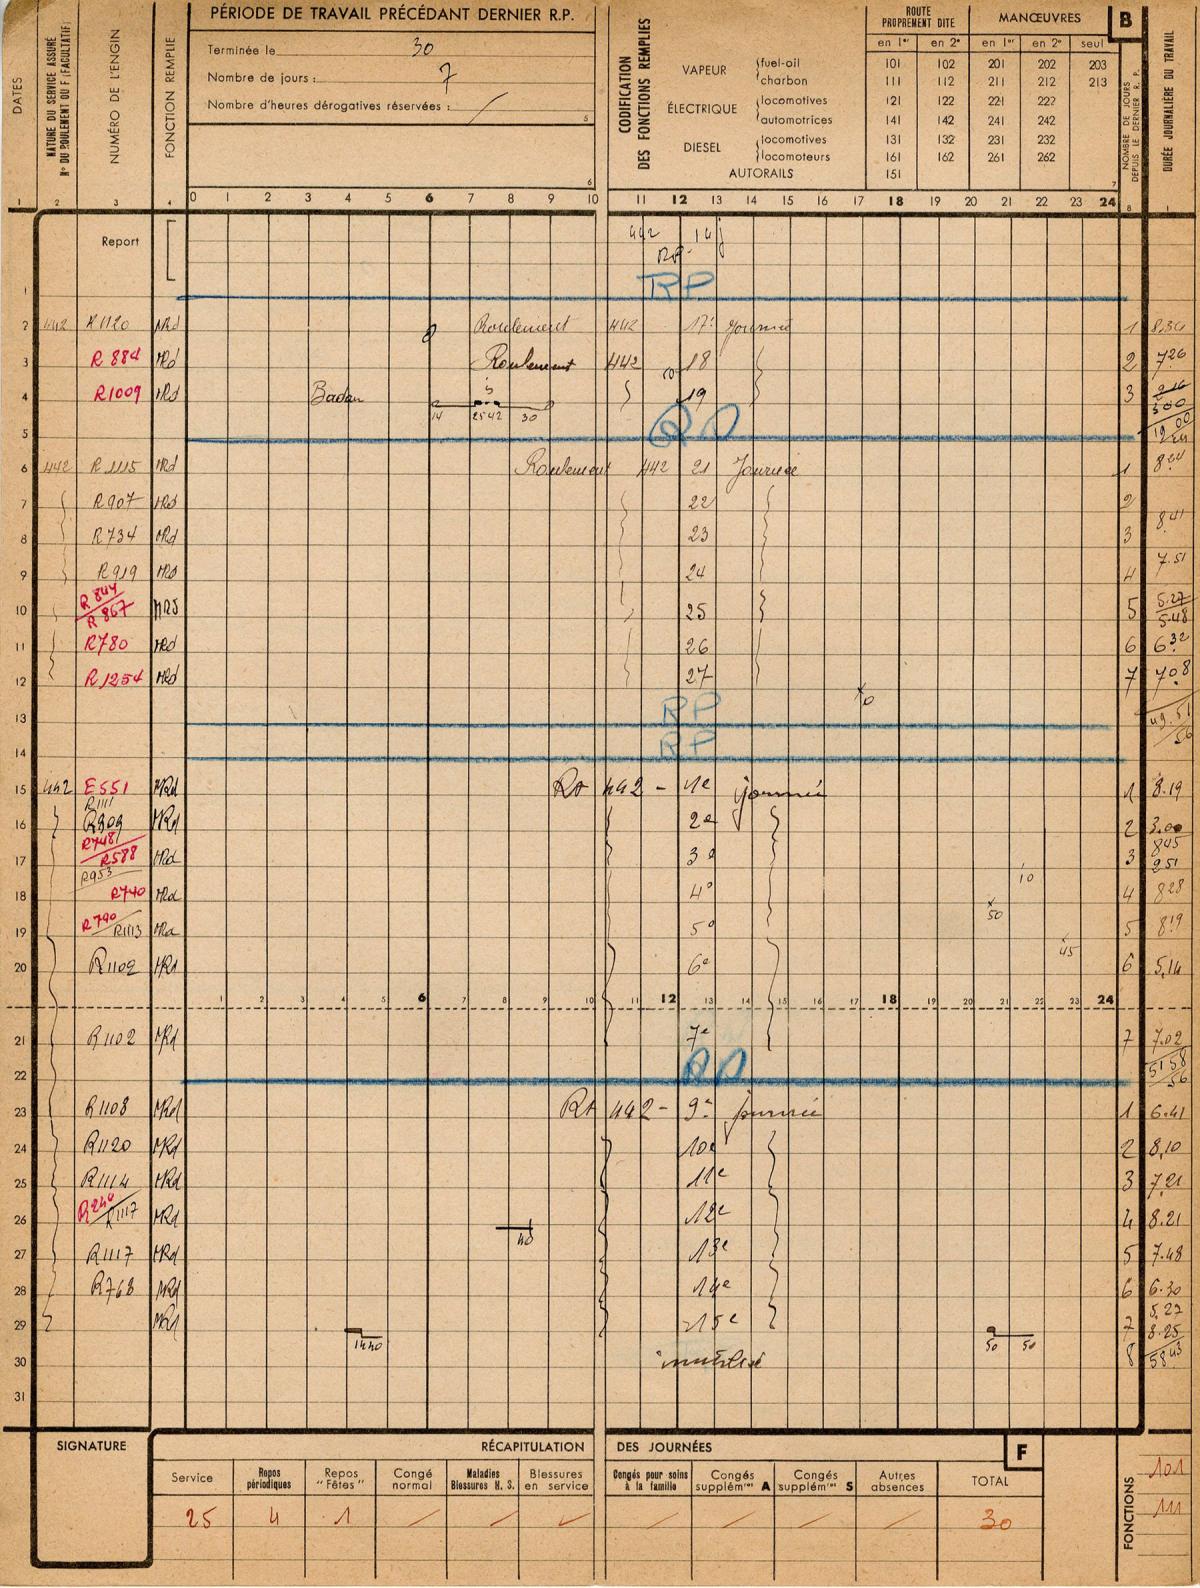 PÉRIODE DE TRAVAIL PRÉCÉDANT DERNIER R.P.
Terminée le 30
Nombre de jours : 7
Nombre d'heures dérogatives réservées : /
5
6
DATES
NATURE DU SERVICE ASSURÉ
N° DU ROULEMENT OU F (FACULTATIF)
NUMÉRO DE L'ENGIN
FONCTION REMPLIE
CODIFICATION
DES FONCTIONS REMPLIES
ROUTE PROPREMENT DITE MANŒUVRES B
en 1er en 2e en 1er en 2e seul
VAPEUR fuel-oil 101 102 201 202 203
charbon 111 112 211 212 213
ÉLECTRIQUE locomotives 121 122 221 222
automotrices 141 142 241 242
DIESEL locomotives 131 132 231 232
locomoteurs 161 162 261 262
AUTORAILS 151
7
NOMBRE DE JOURS
DEPUIS LE DERNIER R. P.
DURÉE JOURNALIÈRE DU TRAVAIL
1 2 3 4 0 1 2 3 4 5 6 7 8 9 10 11 12 13 14 15 16 17 18 19 20 21 22 23 24 8
Report 442 14j
RP
1 RP
2 442 R1120 MRd Roulement 442 17e journée 1 8.34
3 R 884 MRd Roulement 442 18 2 7.26
4 R1009 MRd Badan 14 25 42 30 19 3
5
6 442 R 1115 MRd Roulement 442 21 Journée 1 8.24
7 R907 MRd 22 2
8 R734 MRd 23 3 8.41
9 R919 MRd 24 4 7.51
10 R 844 R 867 25 5 5.27 5.48
11 R780 MRd 26 6 6.32
12 R1254 MRd 27 7 7.08
13 RP 49.51 56
14 RP
15 442 E551 MRd Rt 442 - 1e journée 1 8.19
16 R1111 R809 MRd 2e 2 3.00
17 R748 R588 MRd 3e 3 8.45 2.51
18 R953 R740 MRd 4e 10 50 4 8.28
19 R790 R1113 MRd 5e 45 5 8.19
20 R1102 MRd 6e 6 5.14
1 2 3 4 5 6 7 8 9 10 11 12 13 14 15 16 17 18 19 20 21 22 23 24
21 R1102 MRd 7e 7 7.02
22 RP 51.58 56
23 R1108 MRd Rt 442 - 9e journée 1 6.41
24 R1120 MRd 10e 2 8.10
25 R1114 MRd 11e 3 7.21
26 R240 R1117 MRd 40 12e 4 8.21
27 R1117 MRd 13e 5 7.48
28 R768 MRd 14e 6 6.30
29 MRd 15e 50 50 7 5.27 8.25
30 inutilisé 8 58.43
31
SIGNATURE
RÉCAPITULATION DES JOURNÉES F
Service Repos périodiques Repos "Fêtes" Congé normal Maladies Blessures H. S. Blessures en service Congés pour soins à la famille Congés supplémres A Congés supplémres S Autres absences TOTAL
25 4 1 / / / / / / / 30
FONCTIONS
101
111